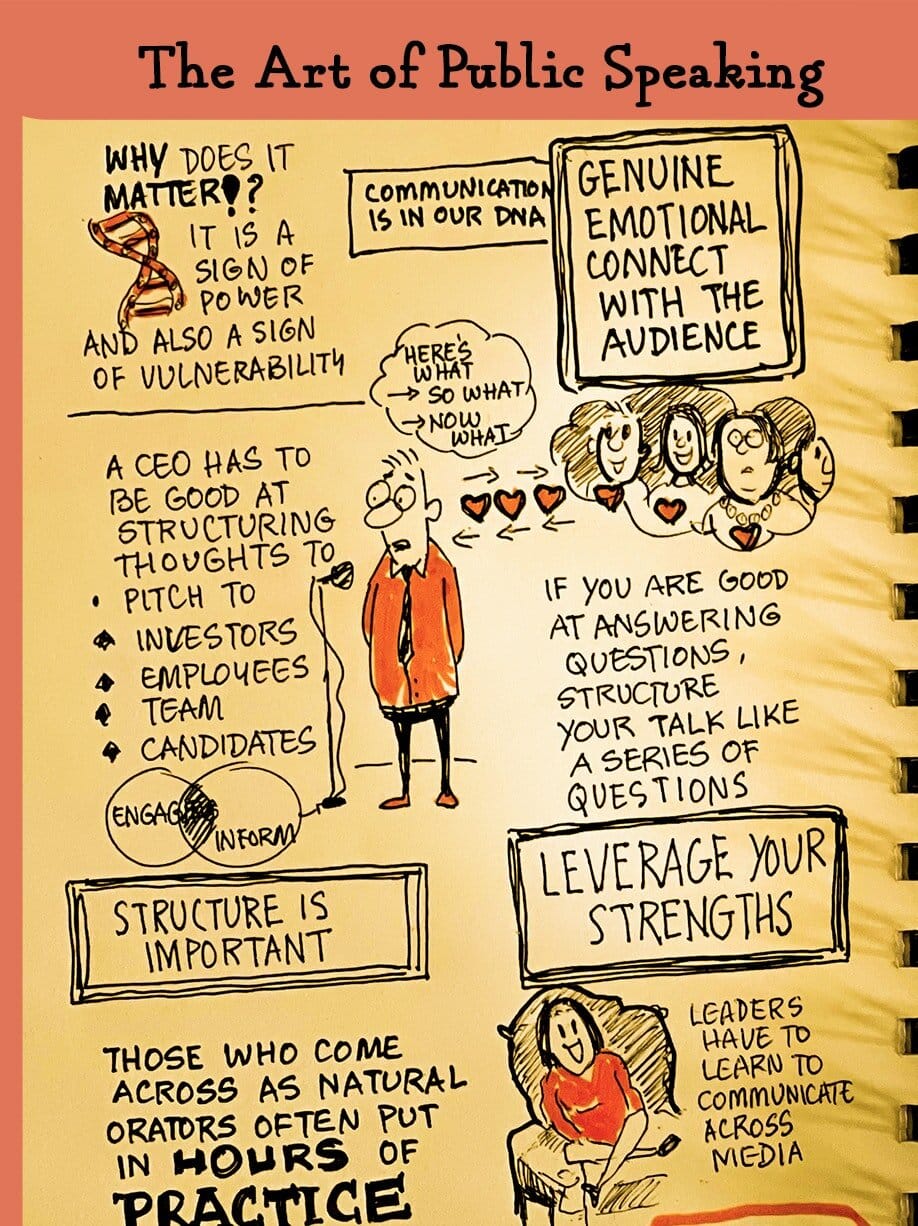 The Art of Public Speaking
WHY DOES IT
MATTER!?
IT IS A
SIGN OF
POWER
AND ALSO A SIGN
OF VULNERABILITY
COMMUNICATION
IS IN OUR DNA
GENUINE
EMOTIONAL
CONNECT
WITH THE
AUDIENCE
HERE'S
WHAT
→ SO WHAT
→ NOW
WHAT
A CEO HAS TO
BE GOOD AT
STRUCTURING
THOUGHTS TO
• PITCH TO
◆ INVESTORS
◆ EMPLOYEES
◆ TEAM
◆ CANDIDATES
ENGAGE
INFORM
STRUCTURE IS
IMPORTANT
IF YOU ARE GOOD
AT ANSWERING
QUESTIONS,
STRUCTURE
YOUR TALK LIKE
A SERIES OF
QUESTIONS
LEVERAGE YOUR
STRENGTHS
THOSE WHO COME
ACROSS AS NATURAL
ORATORS OFTEN PUT
IN HOURS OF
PRACTICE
LEADERS
HAVE TO
LEARN TO
COMMUNICATE
ACROSS
MEDIA